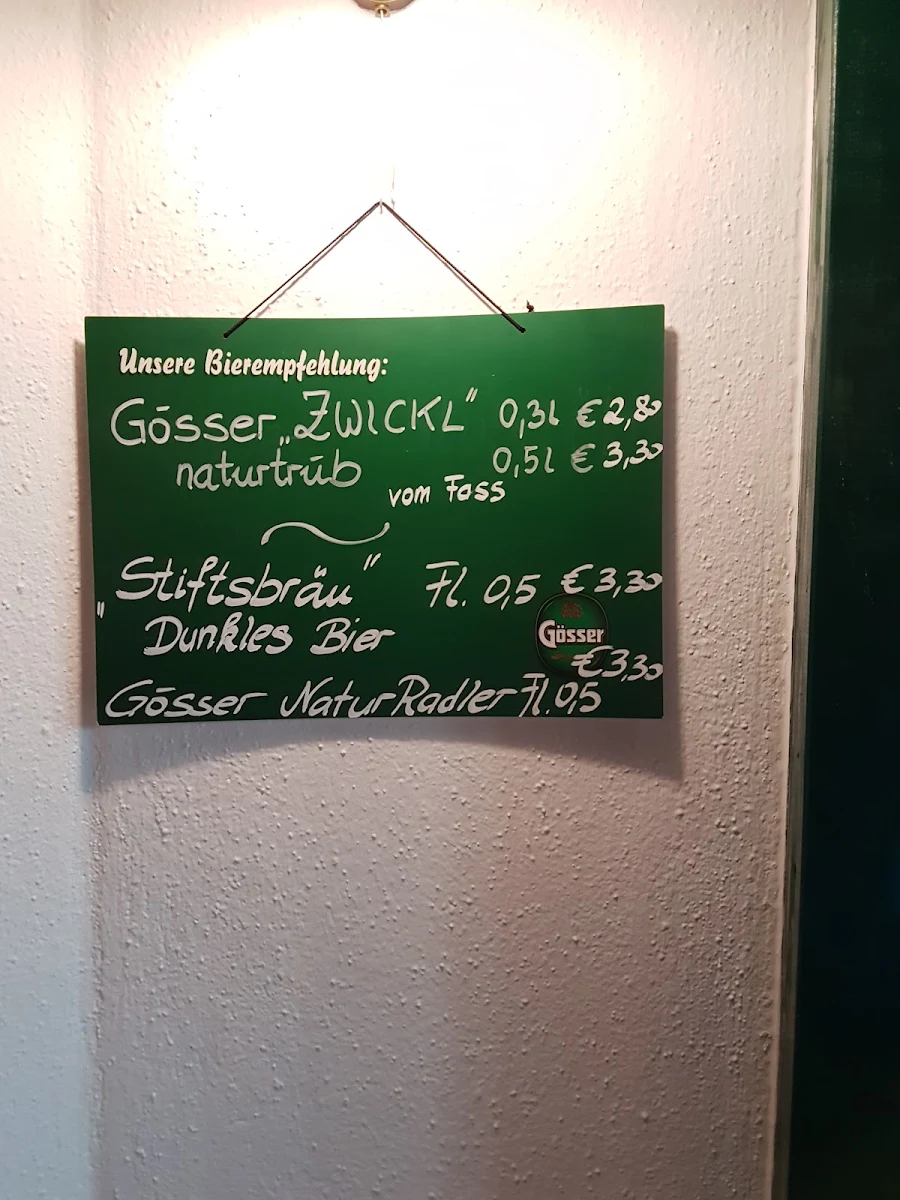 Unsere Bierempfehlung:
Gösser „ZWICKL“ 0,3l € 2,80
naturtrüb 0,5l € 3,30
vom Fass
„Stiftsbräu“ Fl. 0,5 € 3,30
Dunkles Bier
Gösser
€ 3,30
Gösser NaturRadler Fl. 0,5